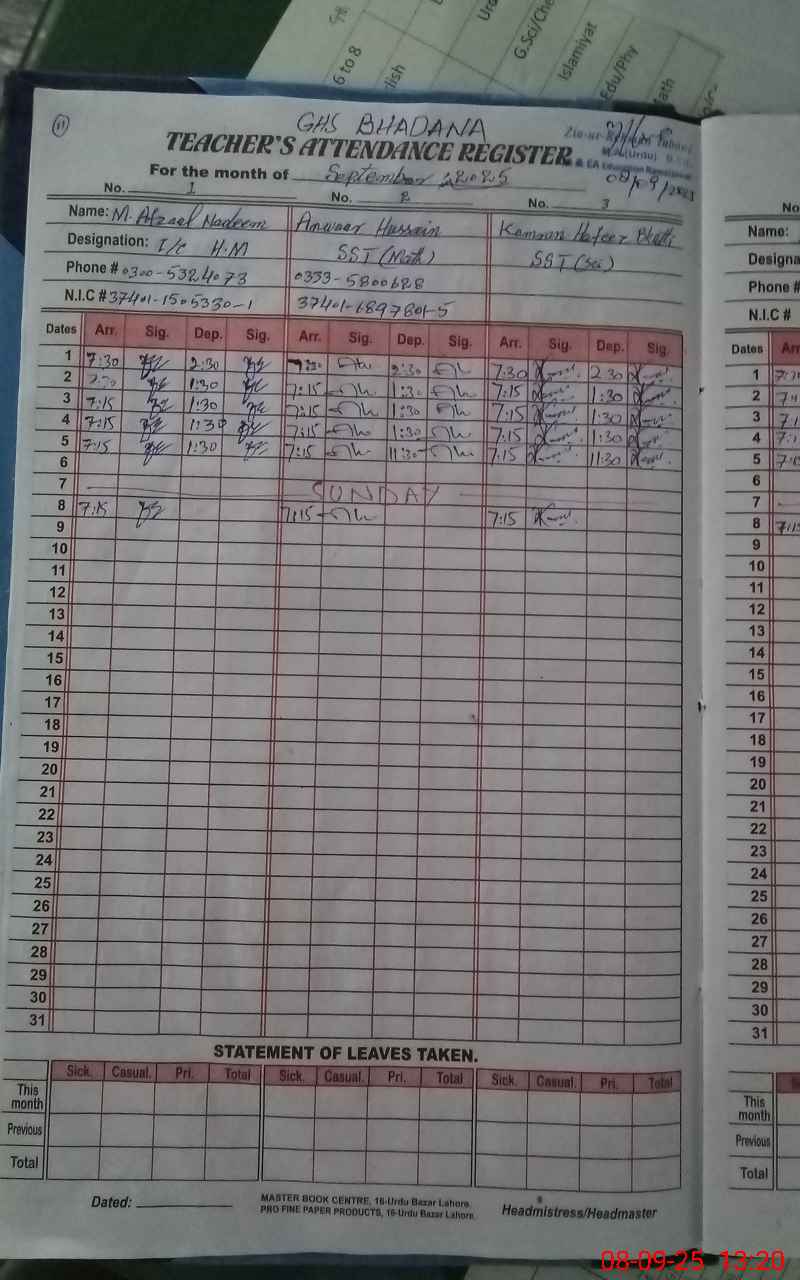 6 to 8
lish
G.Sci/Che
Islamiyat
Edu/Phy
Math
11
GHS BHADANA
TEACHER'S ATTENDANCE REGISTER
M.A (Urdu)
08/09/2025
For the month of September 2025
No. 1 No. 2 No. 3
Name: M. Afzaal Nadeem Anwaar Hussain Kamran Hafeez Bhatti
Designation: I/c H.M SST (Math) SST (Sci)
Phone # 0300-5324073 0333-5800628
N.I.C # 37401-1505330-1 37401-6897801-5
Dates Arr. Sig. Dep. Sig. Arr. Sig. Dep. Sig. Arr. Sig. Dep. Sig.
1 7:30 2:30 7:30 2:30 7:30 2:30
2 1:30 7:15 1:30 7:15 1:30
3 7:15 1:30 7:15 1:30 7:15 1:30
4 7:15 1:30 7:15 1:30 7:15 1:30
5 7:15 1:30 7:15 11:30 7:15 11:30
6
7 SUNDAY
8 7:15 7:15 7:15
9
10
11
12
13
14
15
16
17
18
19
20
21
22
23
24
25
26
27
28
29
30
31
STATEMENT OF LEAVES TAKEN.
Sick. Casual. Pri. Total Sick. Casual. Pri. Total Sick. Casual. Pri. Total
This month
Previous
Total
Dated:
MASTER BOOK CENTRE, 16-Urdu Bazar Lahore.
PRO FINE PAPER PRODUCTS, 16-Urdu Bazar Lahore.
Headmistress/Headmaster
No
Name:
Designa
Phone #
N.I.C #
Dates Arr
1
2
3
4
5
6
7
8 7:15
9
10
11
12
13
14
15
16
17
18
19
20
21
22
23
24
25
26
27
28
29
30
31
This month
Previous
Total
08-09-25 13:20